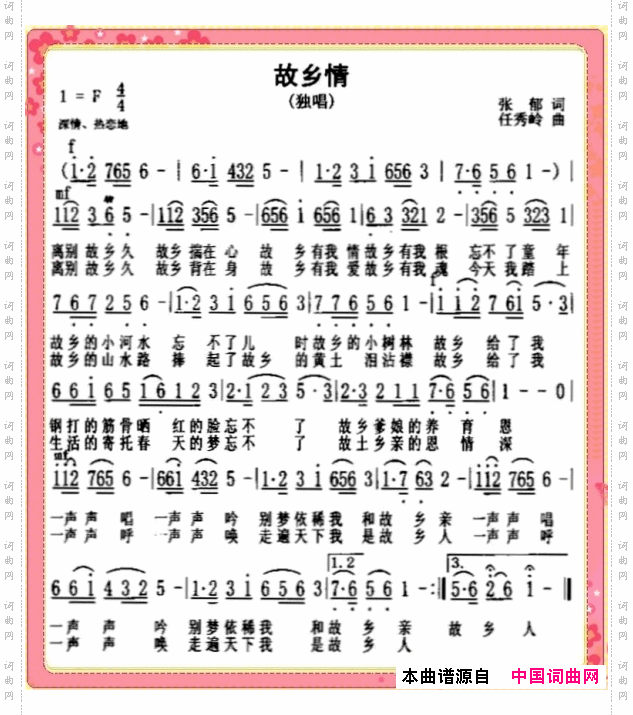 故乡情
(独唱)
1 = F 4/4
张 郁 词
任秀岭 曲
深情、热恋地
f
(1·2 765 6 - | 6·i 432 5 - | 1·2 3 i 656 3 | 7·6 5 6 1 -) |
mf
112 3 6 5 - | 112 356 5 - | 656 i 656 1 | 6 3 321 2 - | 356 5 323 1 |
离别 故乡久 故乡揣在心 故 乡有我情故乡有我根 忘不了童年
离别 故乡久 故乡背在身 故 乡有我爱故乡有我魂 今天我踏上
f
7 6 7 2 5 - | 1·2 3 i 6 5 6 3 | 7 7 6 5 6 1 - | i i 2 7 6i 5·3 |
故乡的小河水 忘 不了儿 时故乡的小树林 故乡 给了我
故乡的山水路 捧 起了故乡 的黄土 泪沾襟 故乡 给了我
6 6 i 6 5 1 6 1 2 3 | 2·1 2 3 5·3 | 2·3 2 1 1 7·6 5 6 | 1 - - 0 |
钢打的筋骨晒 红的脸忘不 了 故乡爹娘的养 育 恩
生活的寄托春 天的梦忘不 了 故土乡亲的恩 情 深
mf
i i 2 765 6 - | 661 432 5 - | 1·2 3 i 656 3 | 1·7 63 2 - | 112 765 6 - |
一声声 唱 一声声 吟 别梦依稀我 和故 乡亲 一声声 唱
一声声 呼 一声声 唤 走遍天下我 是故 乡人 一声声 呼
1.2 3.
6 6 i 4 3 2 5 - | 1·2 3 i 6 5 6 3 | 7·6 5 6 1 - :‖ 5·6 2 6 i - ‖
一声 声 吟 别梦依稀我 和故 乡 亲 故 乡 人
一声 声 唤 走遍天下我 是故 乡 人
本曲谱源自 中国词曲网
词曲网
词曲网
词曲网
词曲网
词曲网
词曲网
词曲网
词曲网
词曲网
词曲网
词曲网
词曲网